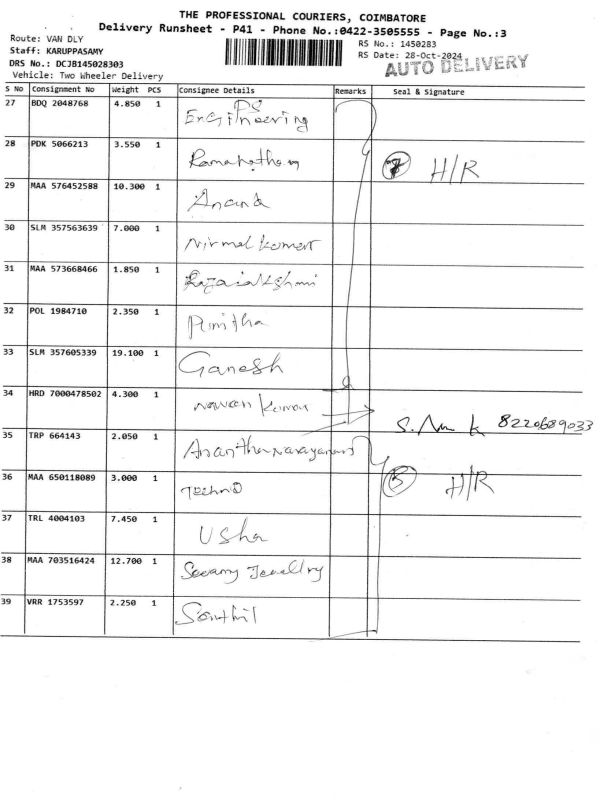 THE PROFESSIONAL COURIERS, COIMBATORE
Delivery Runsheet - P41 - Phone No.:0422-3505555 - Page No.:3
Route: VAN DLY
RS No.: 1450283
Staff: KARUPPASAMY
RS Date: 28-Oct-2024
DRS No.: DCJB145028303
AUTO DELIVERY
Vehicle: Two Wheeler Delivery
S No Consignment No Weight PCS Consignee Details Remarks Seal & Signature
27 BDQ 2048768 4.850 1 PS Engineering
28 PDK 5066213 3.550 1 H/R
29 MAA 576452588 10.300 1 Anand
30 SLM 357563639 7.000 1 Nirmal Kumar
31 MAA 573668466 1.850 1
32 POL 1984710 2.350 1 Punitha
33 SLM 357605339 19.100 1 Ganesh
34 HRD 7000478502 4.300 1 Naveen Kumar 8220689033
35 TRP 664143 2.050 1 Ananthanarayanan
36 MAA 650118089 3.000 1 Techno 5 H/R
37 TRL 4004103 7.450 1 Usha
38 MAA 703516424 12.700 1 Jewellry
39 VRR 1753597 2.250 1 Senthil